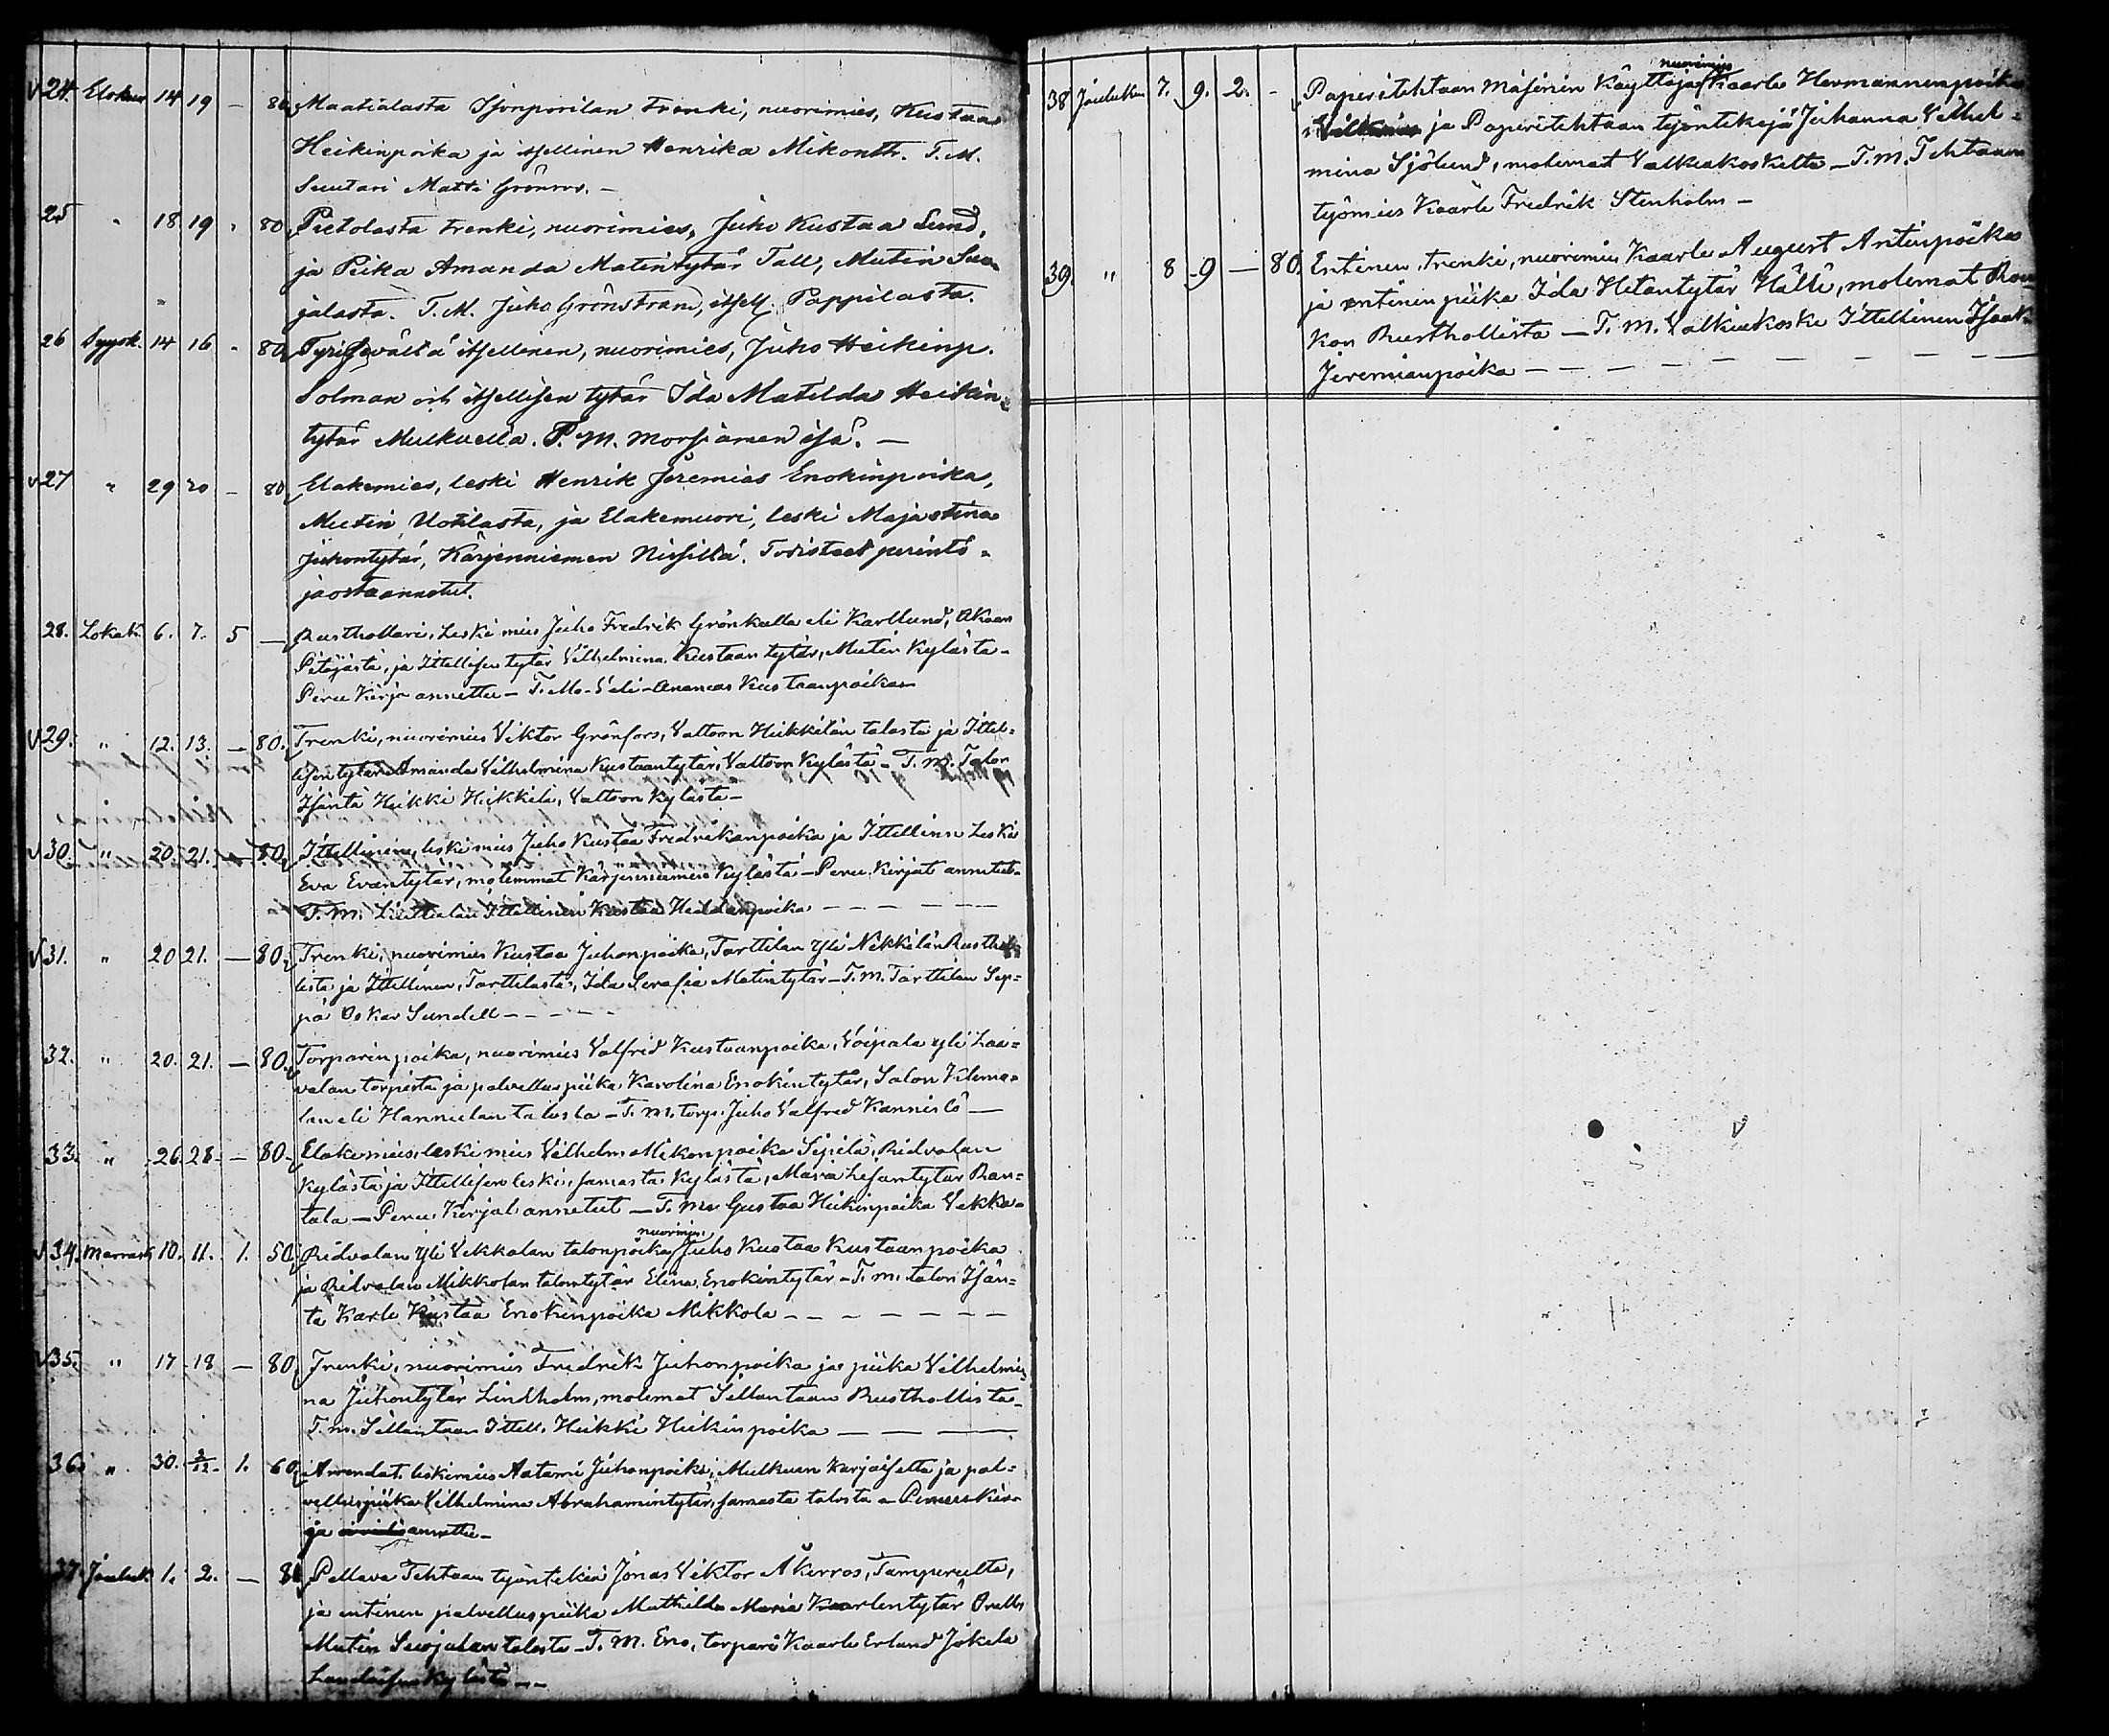 V 24. Elokuu 14 19 – 80 Maatialasta Sjonporilan trenki, nuorimies, Kustaa
Heikinpoika ja itsellinen Henrika Mikontr. T. M.
Suutari Matti Grönroos. –
25 " 18 19 " 80 Pietolasta trenki, nuorimies, Juho Kustaa Lund,
ja Piika Amanda Matintytär Tall, Mutin Suo-
jalasta. T. M. Juho Grönstrand, itsell. Pappilasta.
26 Syysk. 14 16 " 80 itsellinen, nuorimies, Juho Heikinp.
Solman och itsellisen tytär Ida Matilda Heikin-
tytär Mulkuella. T. M. morsiamen isä. –
V 27 " 29 20 – 80 Elakemies, leski Henrik Jeremias Enokinpoika,
Mutin Uotilasta, ja Elakemuori, leski Maja Stina
Juhontytär, Kärjenniemen Nissillä. Todisteet perintö-
jaosta annetut.
28. Lokak. 6. 7. 5 — Rusthollari, Leski mies Juho Fredrik Grönkulla eli Karllund, Akaan
Pitäjästä, ja Ittellisen tytär Vilhelmina Kustaan tytär, Mutin Kylästä –
Peru Kirja annettu – T. M. Veli Ananias Kustaanpoika –
V 29. " 12. 13. – 80. Trenki, nuorimies Viktor Grönfors, Valtoon Heikkilän talosta ja Ittel-
lisen tytär Amanda Vilhelmina Kustaantytär, Valtoon Kylästä – T. M. Talon
Isäntä Heikki Heikkilä, Valtoon Kylästä –
V 30. " 20. 21. – 80. Ittellinen, leski mies Juho Kustaa Fredrikanpoika ja Ittellinen Leski
Eva Evantytär, molemmat Kärjenniemen Kylästä – Peru Kirjat annetut –
T. M. Liuttulan Ittellinen Kustaa Heddanpoika – – – – –
V 31. " 20 21. – 80. Trenki, nuorimies Kustaa Juhonpoika, Tarttilan Yli Nikkilän Rusthol-
lista ja Ittellinen, Tarttilasta, Ida Serafia Matintytär – T. M. Tarttilan Sep-
pä Oskar Sundell – – – –
32. " 20. 21. – 80. Torparin poika, nuorimies Valfrid Kustaanpoika, Voipala yli Laa-
valan torpista ja palvelluspiika Karolina Enokintytär, Salon Vilema-
lan eli Hannulan talosta – T. M. torp. Juho Valfred Kannisto –
33. " 26. 28. – 80. Elakemies, leski mies Vilhelm Mikonpoika Sipilä, Ridvalan
Kylästä ja Ittellisen leski, samasta Kylästä, Maria Lesantytär Ran-
tala – Peru Kirjat annetut – T. M. Gustaa Heikinpoika Vekka –
nuorimies
V 34. Marrask. 10. 11. 1. 50. Ridvalan Yli Vekkalan talonpoika Juho Kustaa Kustaanpoika
ja Ridvalan Mikkolan talontytär Elina Enokintytär – T. M. talon Isän-
tä Karle Kustaa Enokinpoika Mikkola – – – – – – –
V 35. " 17 18 – 80. Trenki, nuorimies Fredrik Juhonpoika ja piika Vilhelmii-
na Juhontytär Lindholm, molemat Sillantaan Rusthollista –
T. M. Sillantaan Ittell. Heikki Heikinpoika — — —
36. " 30. 3/12. 1. 60. Arrendat. leskimies Aatami Juhonpoika, Mulkuan Karjaiselta ja pal-
velluspiika Vilhelmina Abrahamintytär, samasta talosta – Peruu Kir-
ja annettu –
37. Jouluk. 1. 2. — 80 Pellava Tehtaan työntekiä Jonas Viktor Åkerros, Tampereelta,
ja entinen palvelluspiika Mathilda Maria Kaarlentytär
Mutin Suojalan talosta – T. M. Ens. torpari Kaarle Erland Jokela
Kylästä – –
nuorimies
38 Jouluku 7. 9. 2. – Paperitehtaan Masinin Käyttäjä Kaarle Hermanninpoika
ja Paperitehtaan työntekijä Juhanna Vilhel-
mina Sjölund, molemat Valkiakoskelta – T. M. Tehtaan
työmies Kaarle Fredrik Stenholm –
39. " 8 9 — 80. Entinen trenki, nuorimies Kaarle August Antinpoika
ja entinen piika Ida Hetantytär Hälli, molemat
Kon Rusthollista – T. M. Valkiakoske Ittellinen Isaak
Jeremianpoika – – – – – – – –